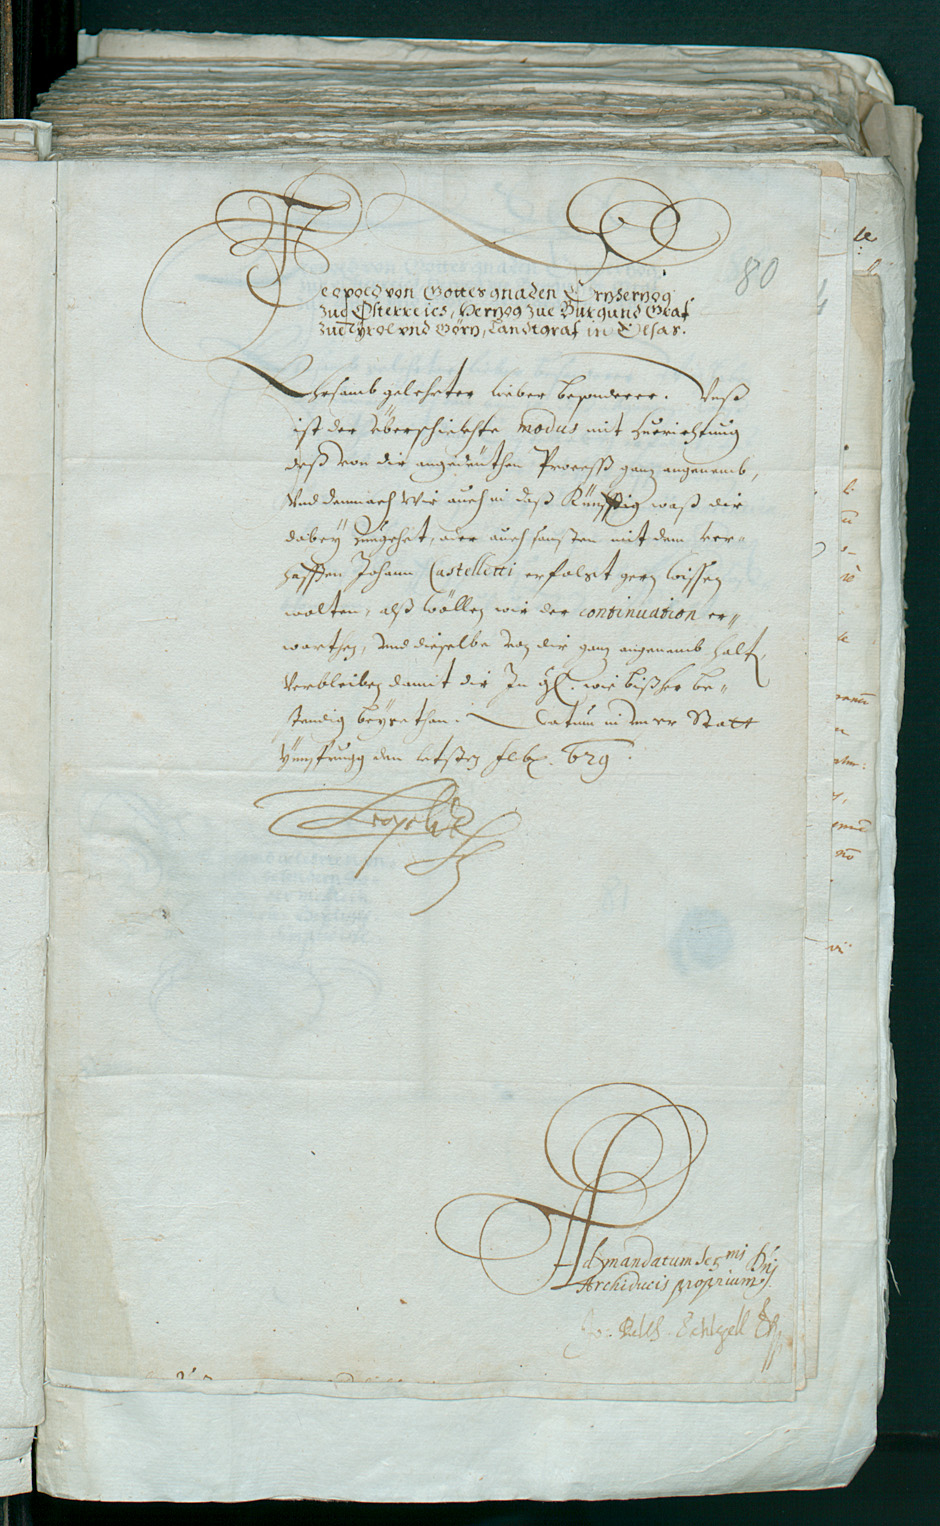 80
Leopold von Gottes gnaden Ertzherzog
zue Österreich, Herzog zue Burgund Graf
zue Tyrol vnd Görz, Landtgraf in Elsas.
Ehrsamb gelehrter lieber besonderer. Vnß
ist der überschickhte modus mit zuerichtung
deß von dir angedeuthen Process ganz angenemb,
Vnd demnach Wir auch in daß Künfftig waß dir
dabey zuegehet, oder auch sonsten mit dem ver-
hafften Johann Castelletti erfolgt gern wissen
wolten, alß wöllen wir der continuation er-
warthen, vnd dieselbe von dir ganz angenemb halt.
Verbleiben damit dir In gn. wie bißher be-
stendig beygethan. Datum in vnser Statt
Ynnsprugg den letsten 629.
Leopold
Ad mandatum Ser.mi Dni
Archiducis proprium.